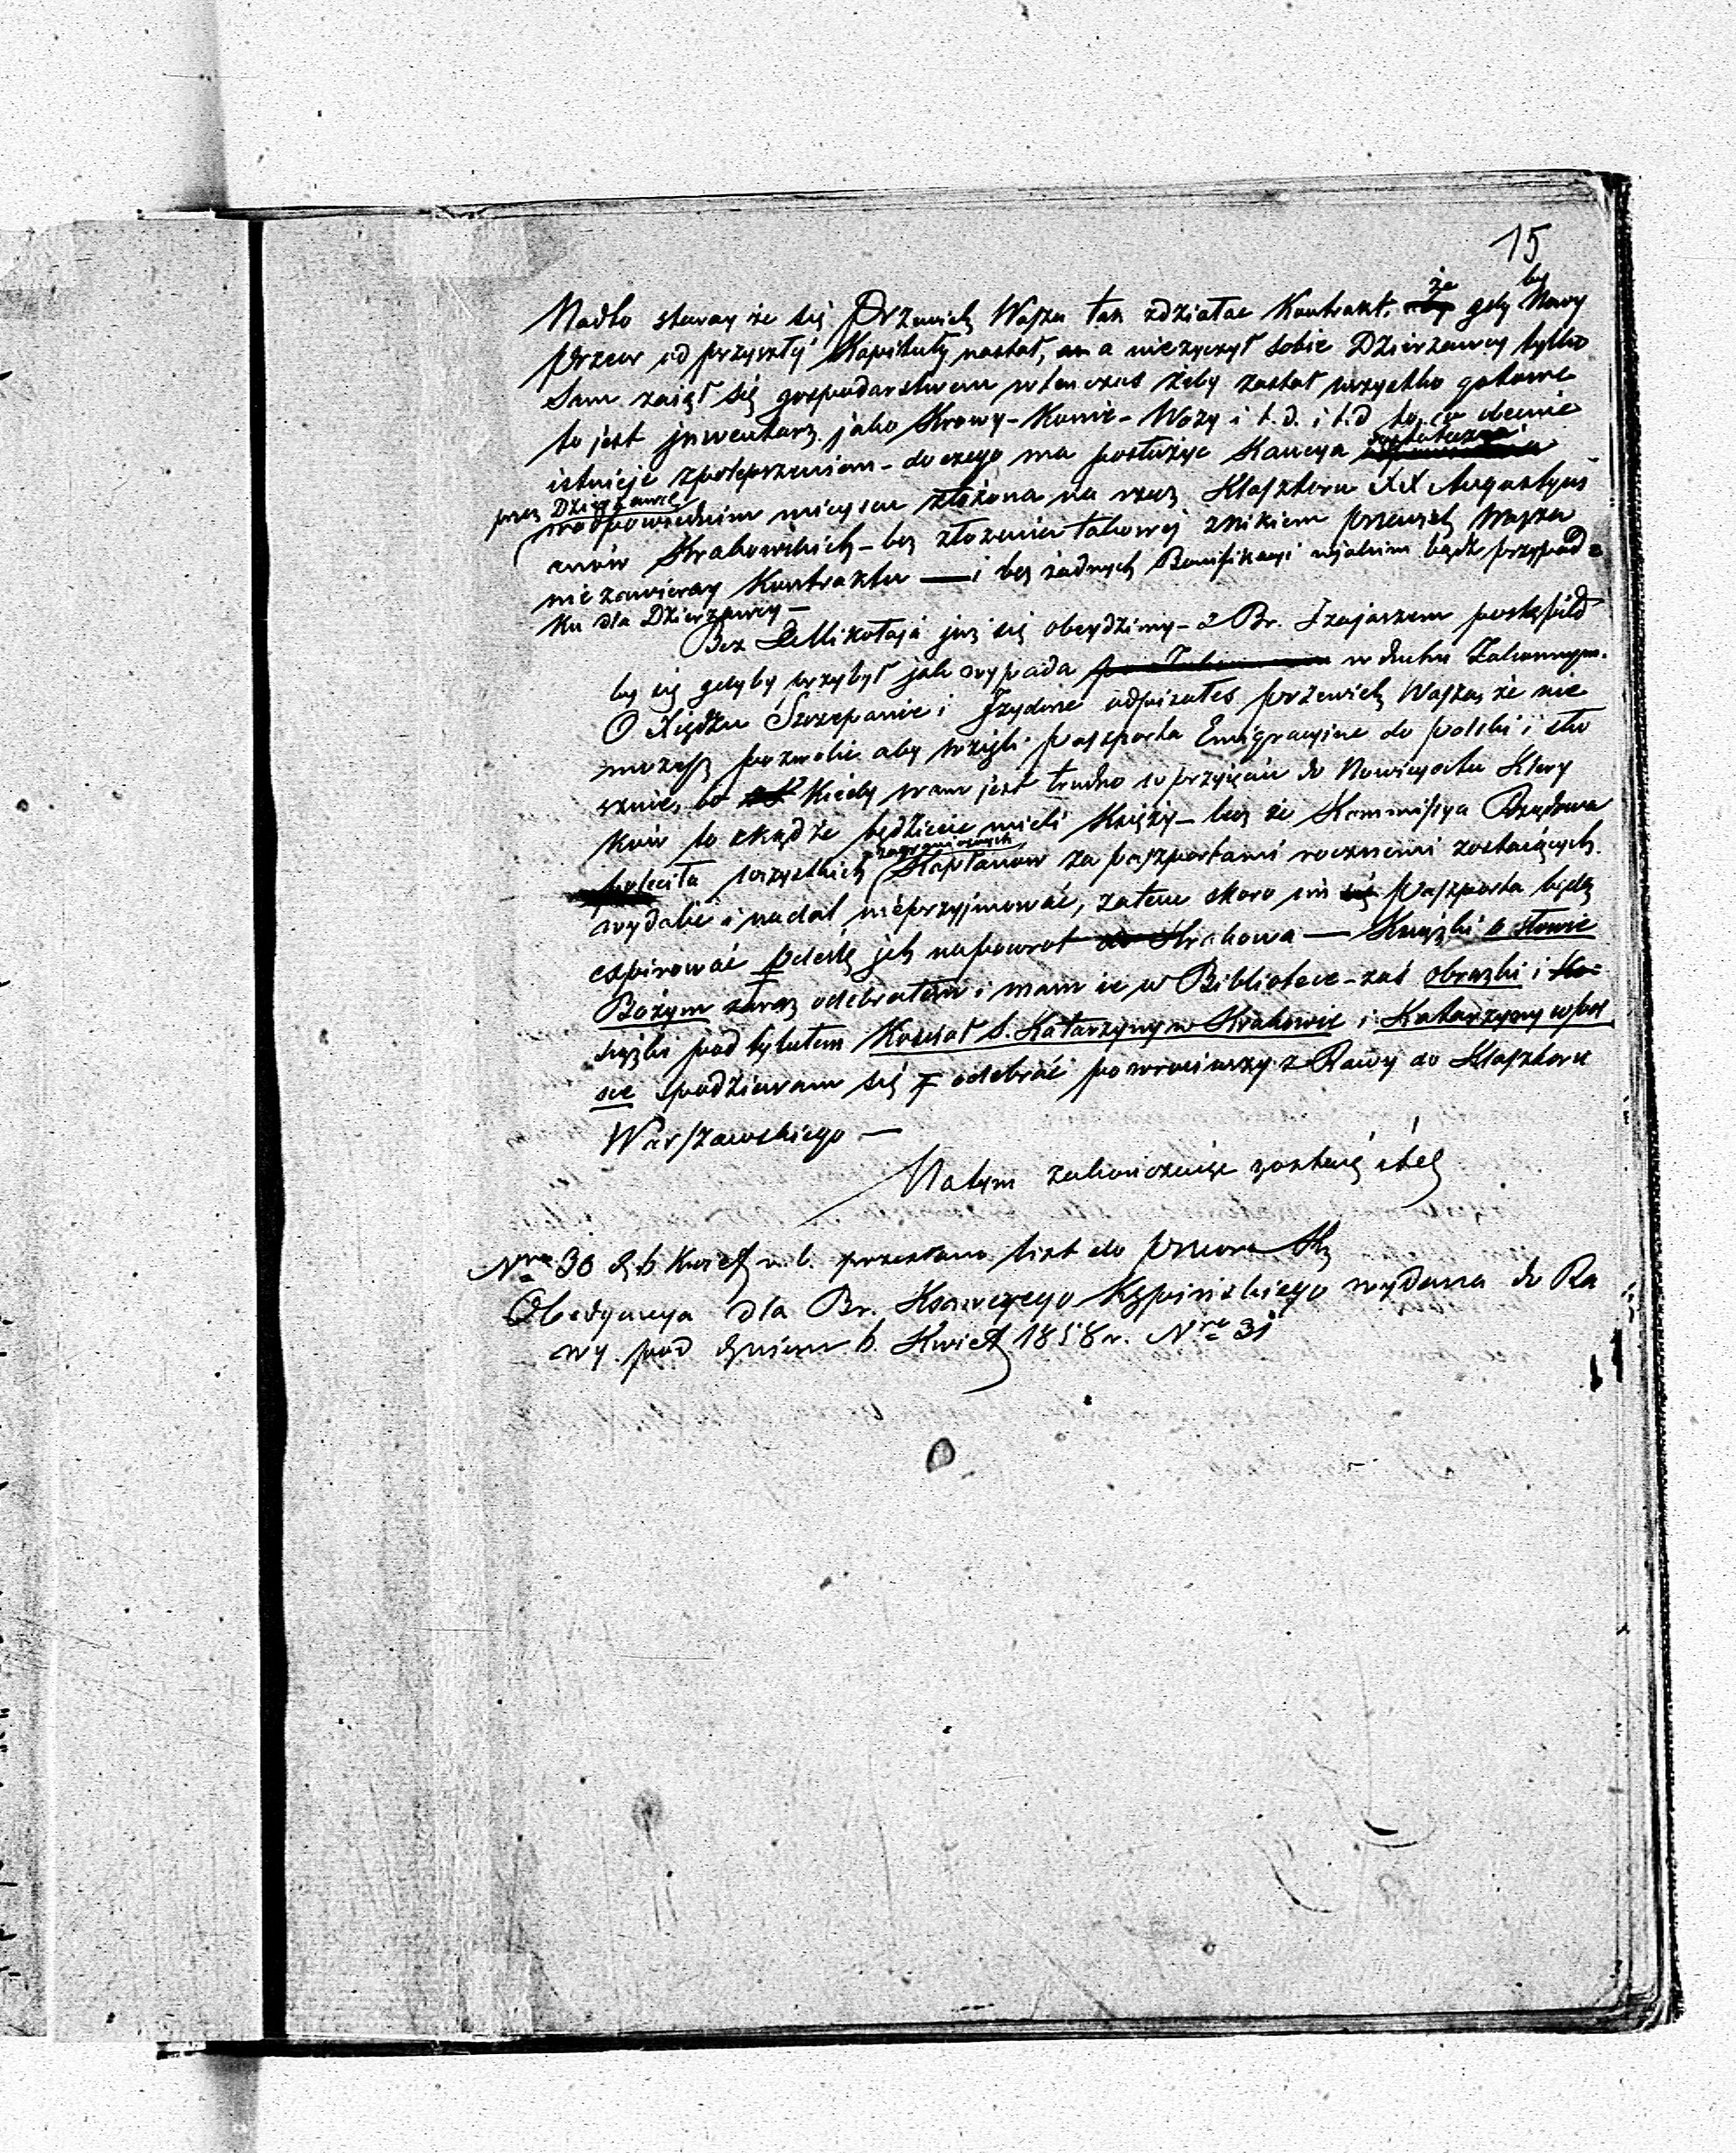 15
Nadto staray że się Przewiel Wasza tak zdziałać Kontrakt, że gdyby Nowy
Przeor od przyszłej Kapituły nastał, a nieżyczył sobie Dzierżawcy tylko
Sam zajął się gospodarstwem wtenczas żeby zastał wszystko gotowe
to jest jnwentarz jako Krowy - Konie - Wozy i t. d. i t. d to, co obecnie
istnieje zpolepszeniem - do czego ma posłużyć Kaucya dostateczna
przez Dzierżawcę
w odpowiednim miejscu złożona na rzecz Klasztoru XX Augustyni
anów Krakowskich - bez złożenia takowej znikiem Przewiel Wasza
nie zawieray Kontraktu — i bez żadnych Bonifikacyi wjakim bądź przypad=
ku dla Dzierżawcy —
Bez Mikołaja już się obeydzimy - z Br. Izajaszem postąpiło
by się gdyby przybył jak wypada w duchu Zakonnym.
O Xiędzu Szczepanie i Izydorze odpisałeś Przewiel Wasza, że nie
możesz pozwolić aby wzięli paszporta Emigracyine do Polski i słu
sznie, bo Kiedy wam jest trudno o przyjęcie do Nowicyatu Klery
ków to skądże będziecie mieli Księży - lecz że Kommissya Rządowa
poleciła wszystkich zagranicznych Kapłanów za paszportami rocznemi zostaiących
wydalić i nadal nieprzyjmować, zatem skoro im paszporta będą
expirować odeślę jch napowrot do Krakowa — Książki o Słowie
Bożym zaraz odebrałem i mam je w Bibliotece - zaś obrazki i
siążki pod tytułem Kościoł S. Katarzyny w Krakowie i Katarzyny w Pol
sce spodziewam się odebrać powrociwszy z Rawy do Klasztoru
Warszawskiego —
Na tym zakończając zostaię etc
Nro 30 d. 6 Kwiet r. b. przesłano list do Przeora
Obedyencya dla Br. Ksawerego Kępińskiego wydana do Ra
wy pod dniem 6. Kwiet 1858 r. Nro 31